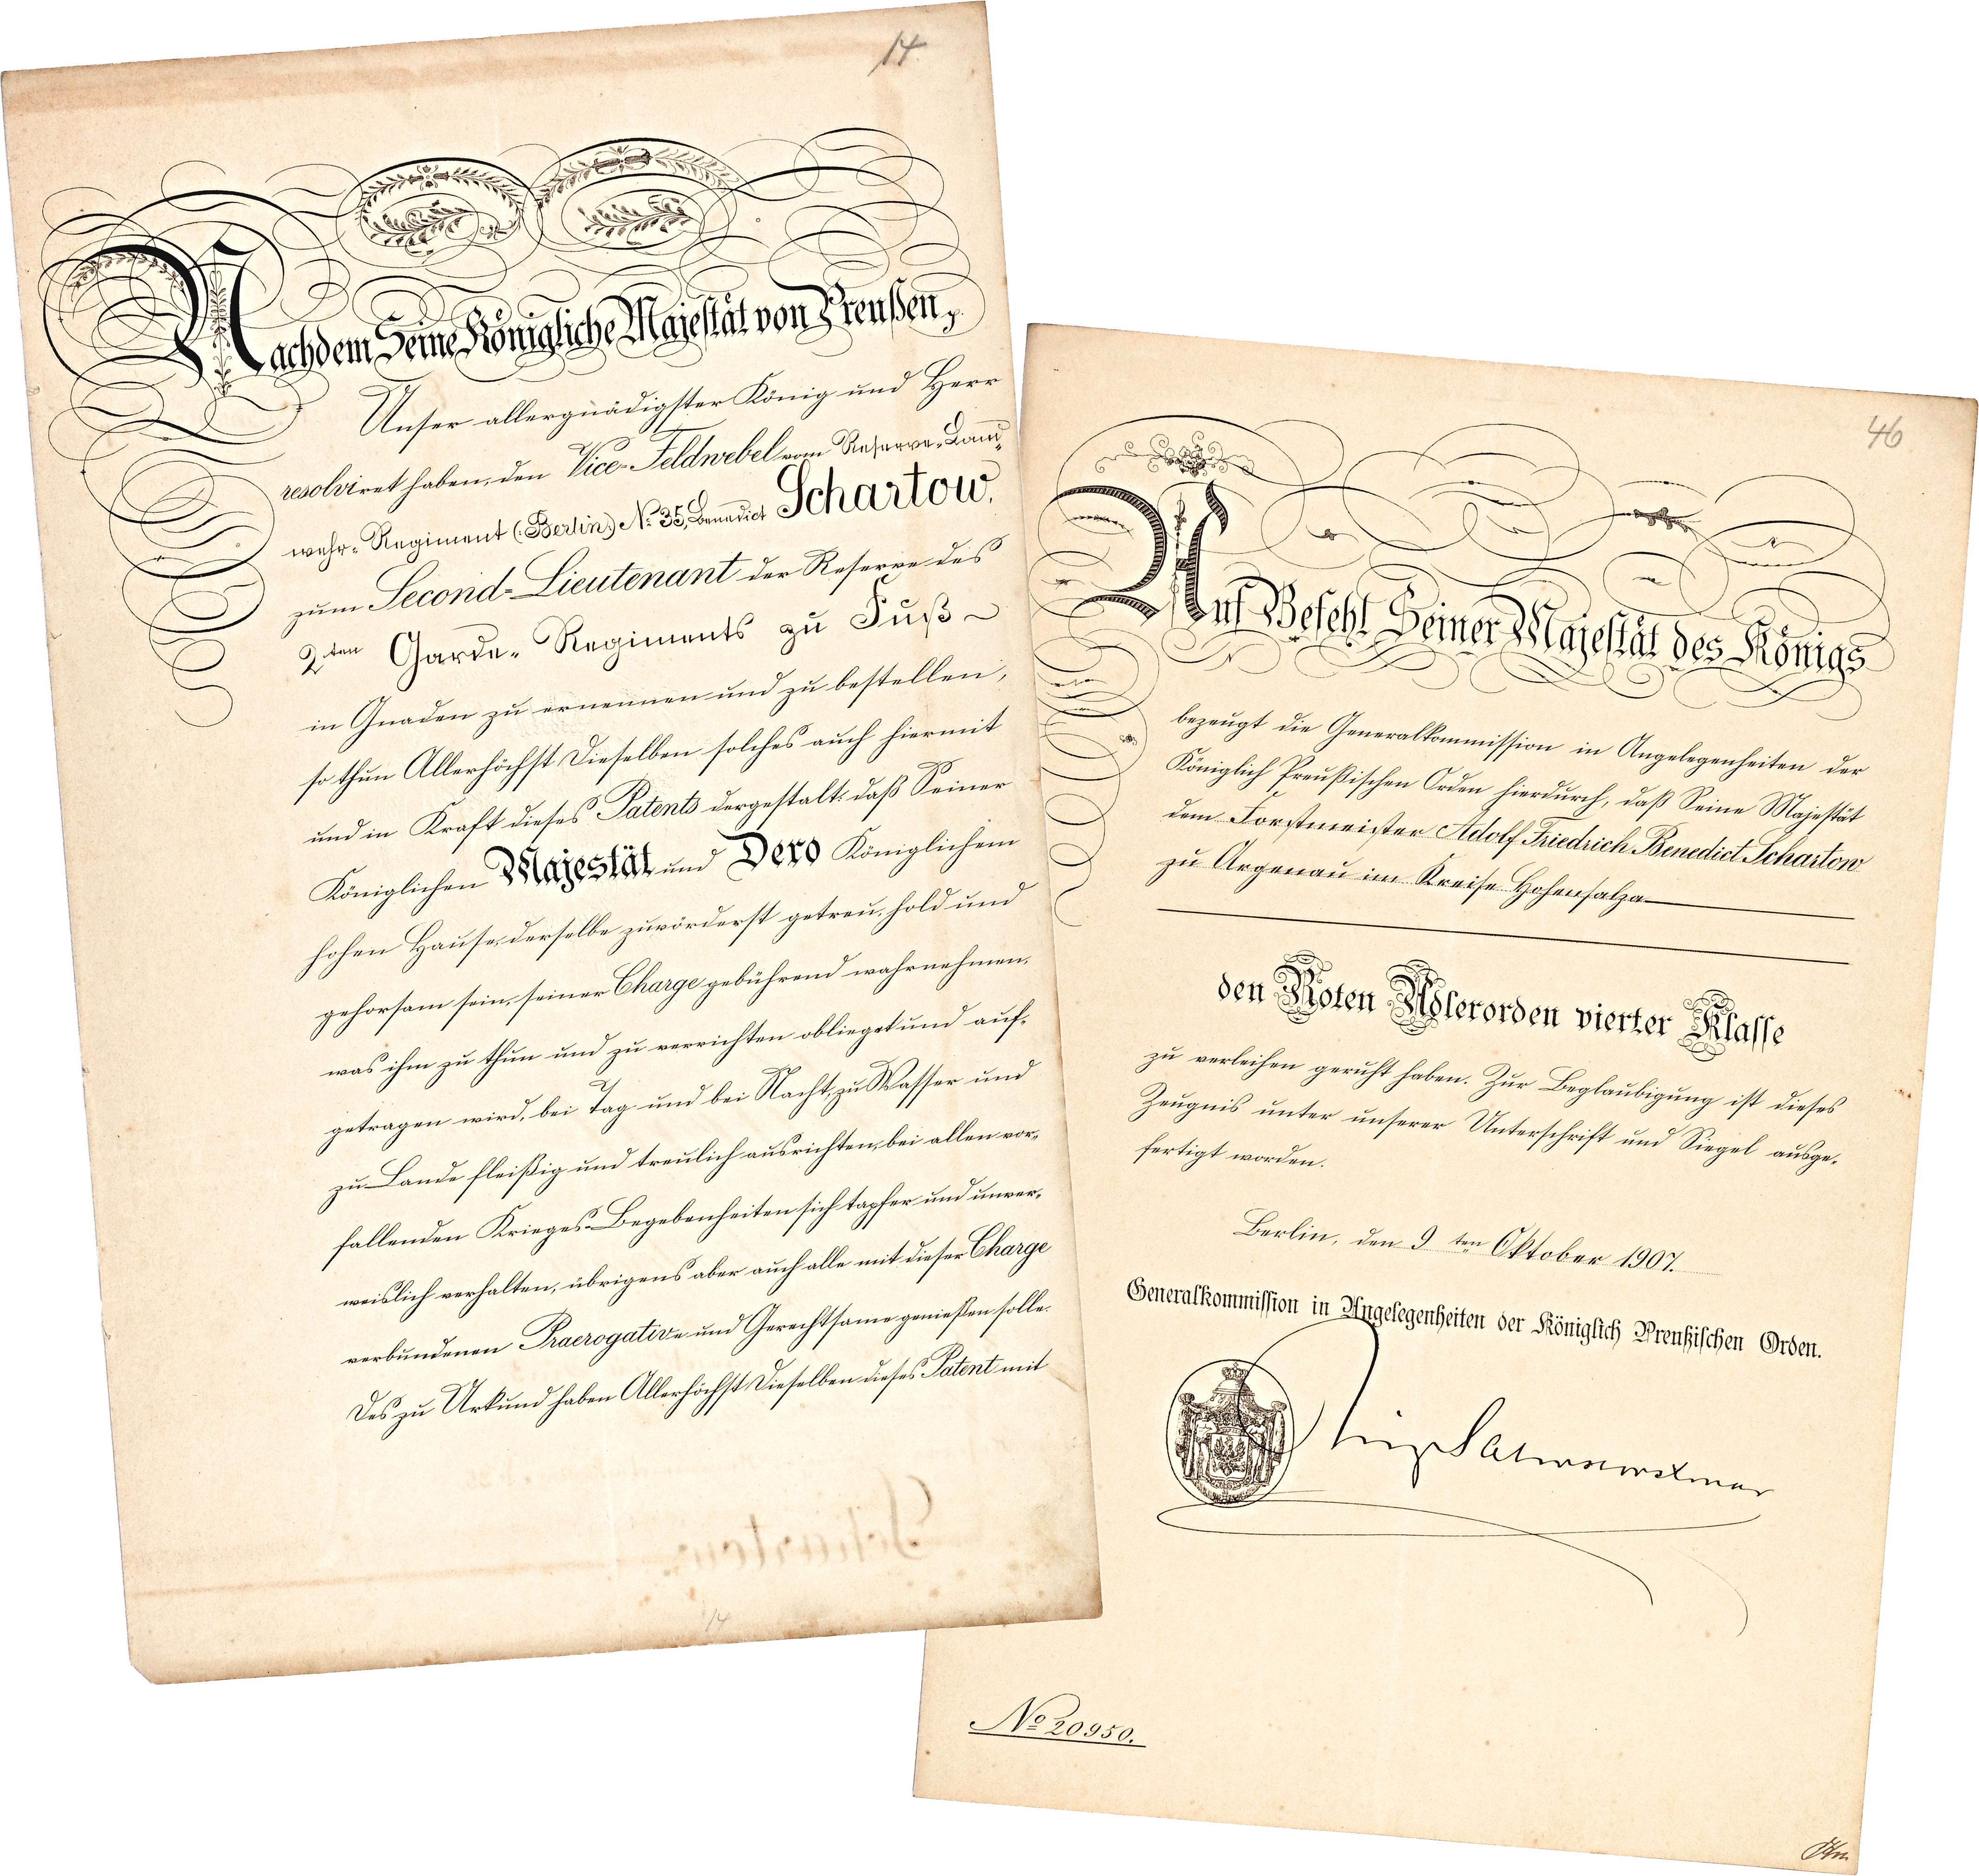 14
Nachdem Seine Königliche Majestät von Preußen,
Unser allergnädigster König und Herr
resolviret haben, den Vice-Feldwebel vom Reserve-Land-
wehr-Regiment (Berlin) No 35, Benedict Schartow,
zum Second-Lieutenant der Reserve des
2ten Garde-Regiments zu Fuß
in Gnaden zu ernennen und zu bestellen,
so thun Allerhöchst Dieselben solches auch hiermit
und in Kraft dieses Patents dergestalt: daß Seiner
Königlichen Majestät und Dero Königlichem
hohen Hause, derselbe zuvörderst getreu, hold und
gehorsam sein, seiner Charge gebührend wahrnehmen,
was ihm zu thun und zu verrichten oblieget und auf-
getragen wird, bei Tag und bei Nacht, zu Wasser und
zu Lande fleißig und treulich ausrichten, bei allen vor-
fallenden Krieges-Begebenheiten sich tapfer und unver-
weislich verhalten, übrigens aber auch alle mit dieser Charge
verbundenen Praerogative und Gerechtsame genießen solle.
Des zu Urkund haben Allerhöchst Dieselben dieses Patent mit
14
46
Auf Befehl Seiner Majestät des Königs
bezeugt die Generalkommission in Angelegenheiten der
Königlich Preußischen Orden hierdurch, daß Seine Majestät
dem Forstmeister Adolf Friedrich Benedict Schartow
zu Argenau im Kreise Hohensalza
den Roten Adlerorden vierter Klasse
zu verleihen geruht haben. Zur Beglaubigung ist dieses
Zeugnis unter unserer Unterschrift und Siegel ausge-
fertigt worden.
Berlin, den 9ten Oktober 1907.
Generalkommission in Angelegenheiten der Königlich Preußischen Orden.
No 20950.